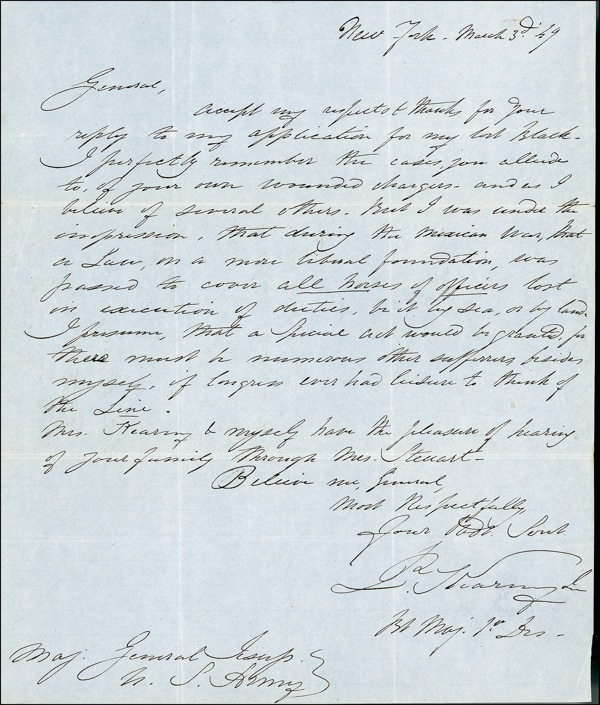 New York. March 3d 49
General,
accept my respects & thanks for your
reply to my application for my lost Black-
I perfectly remember the cases, you allude
to, of your own wounded chargers- and as I
believe of several others. But I was under the
impression, that during the Mexican War, that
a Law, on a more liberal foundation, was
passed to cover all horses of officers lost
in execution of duties, be it by sea, or by land.
I presume, that a Special act would be granted, for
there must be numerous other sufferers besides
myself, if Congress ever had leisure to think of
the Line.
Mrs. Kearny & myself have the pleasure of hearing
of your family through Mrs. Steuart-
Believe me, General,
Most Respectfully
Your Obdt. Svnt.
P. Kearny Jr
Bt Maj. 1st Drs-
Maj. General Jesup.
U. S. Army